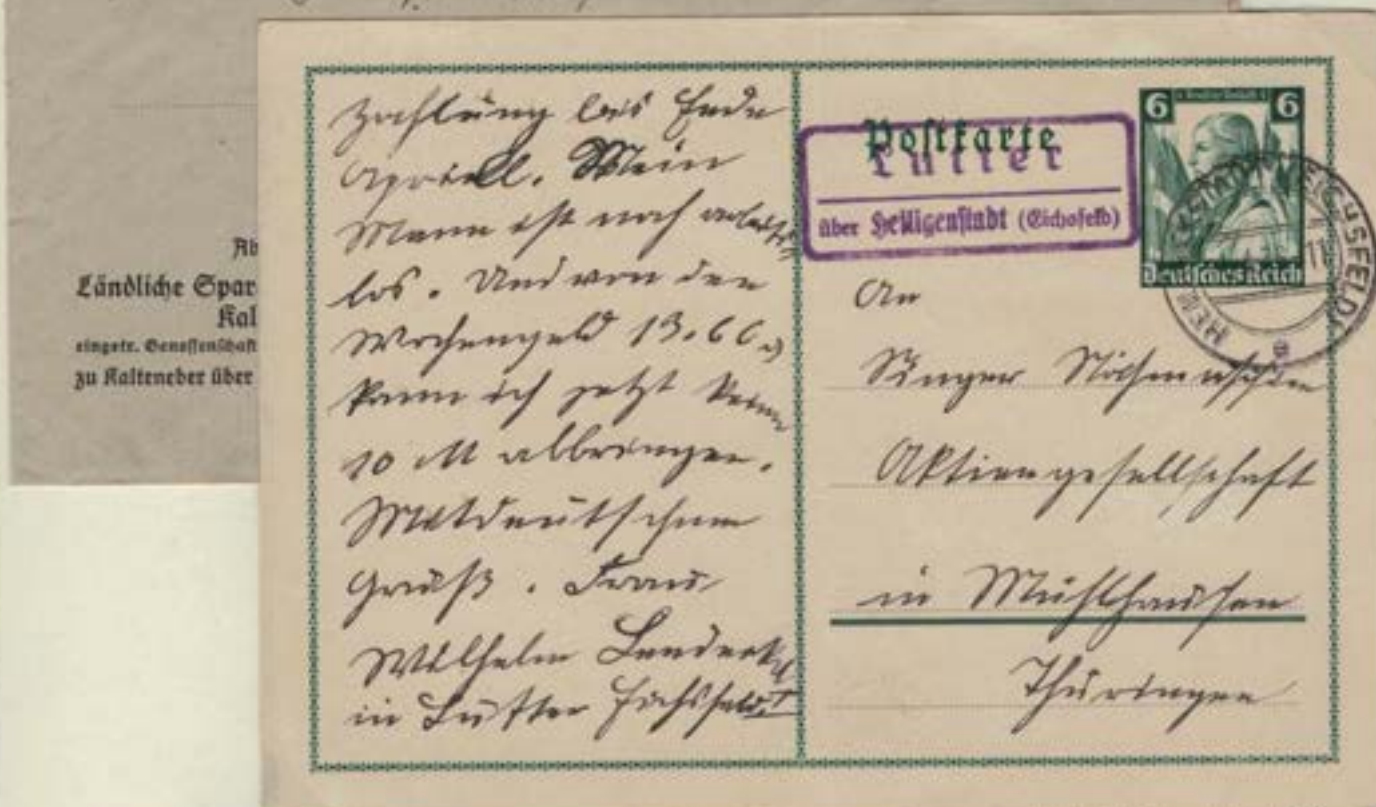 Ländliche Spar
Kal
eingetr. Genossenschaft
zu Kalteneber über
Zahlung bis Ende
April. Mein
Mann ist noch arbeits
los. Und von den
Wochengeld 13.66
kann ich jetzt keine
10 M abbringen.
Mitdeutschem
Gruß. Frau
Wilhelm
in Lutter Eichsfeld
Postkarte
Lutter
über Heiligenstadt (Eichsfeld)
6 6
Deutsches Reich
HEILIGENSTADT (EICHSFELD)
An
Singer Nähmaschinen
Aktiengesellschaft
in Mühlhausen
Thüringen